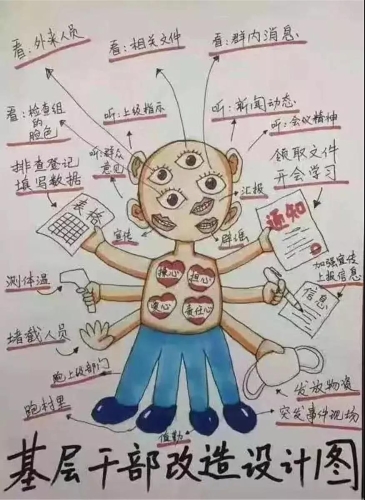 看:外来人员
看:相关文件
看:群内消息
看:检查组
的
脸色
听:上级指示
听:新闻动态
听:会议精神
听:群众
意见
排查登记
填写数据
领取文件
开会学习
汇报
宣传
辟谣
表格
通知
测体温
担心
责任心
信息
加强宣传
上报信息
堵截人员
跑上级部门
跑村里
值勤
发放物资
突发事件现场
基层干部改造设计图